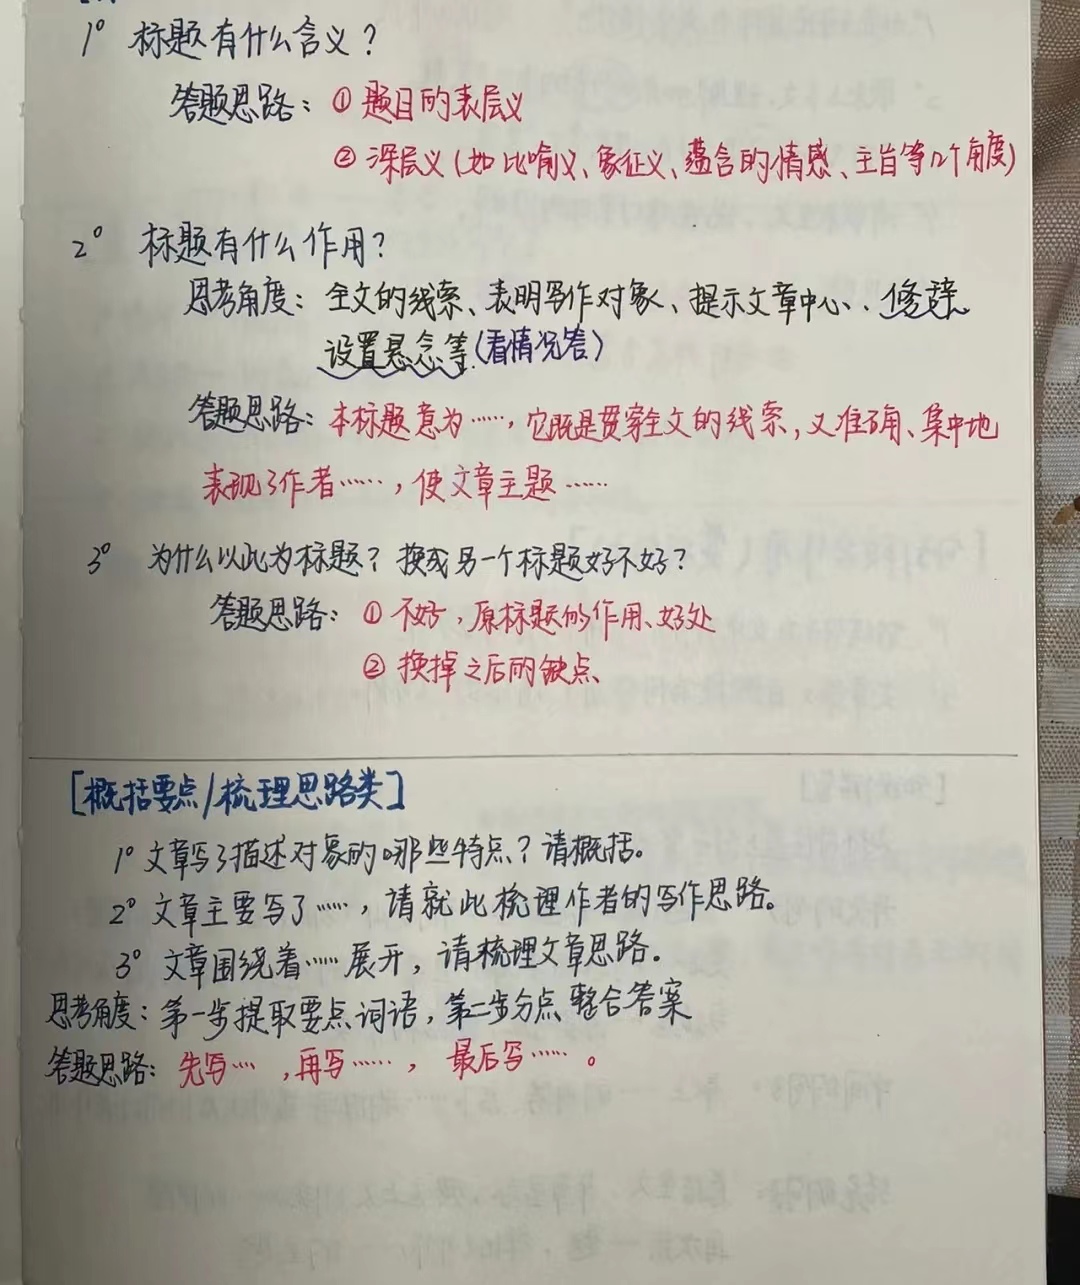 1° 标题有什么含义？
答题思路：① 题目的表层义
② 深层义(如比喻义、象征义、蕴含的情感、主旨等几个角度)
2° 标题有什么作用？
思考角度：全文的线索、表明写作对象、提示文章中心、修辞、
设置悬念等(看情况答)
答题思路：本标题意为……，它既是贯穿全文的线索，又准确、集中地
表现了作者……，使文章主题……
3° 为什么以此为标题？换成另一个标题好不好？
答题思路：① 不好，原标题的作用、好处
② 换掉之后的缺点、
[概括要点/梳理思路类]
1° 文章写了描述对象的哪些特点？请概括。
2° 文章主要写了……，请就此梳理作者的写作思路。
3° 文章围绕着……展开，请梳理文章思路。
思考角度：第一步提取要点词语，第二步分点整合答案
答题思路：先写……，再写……，最后写……。